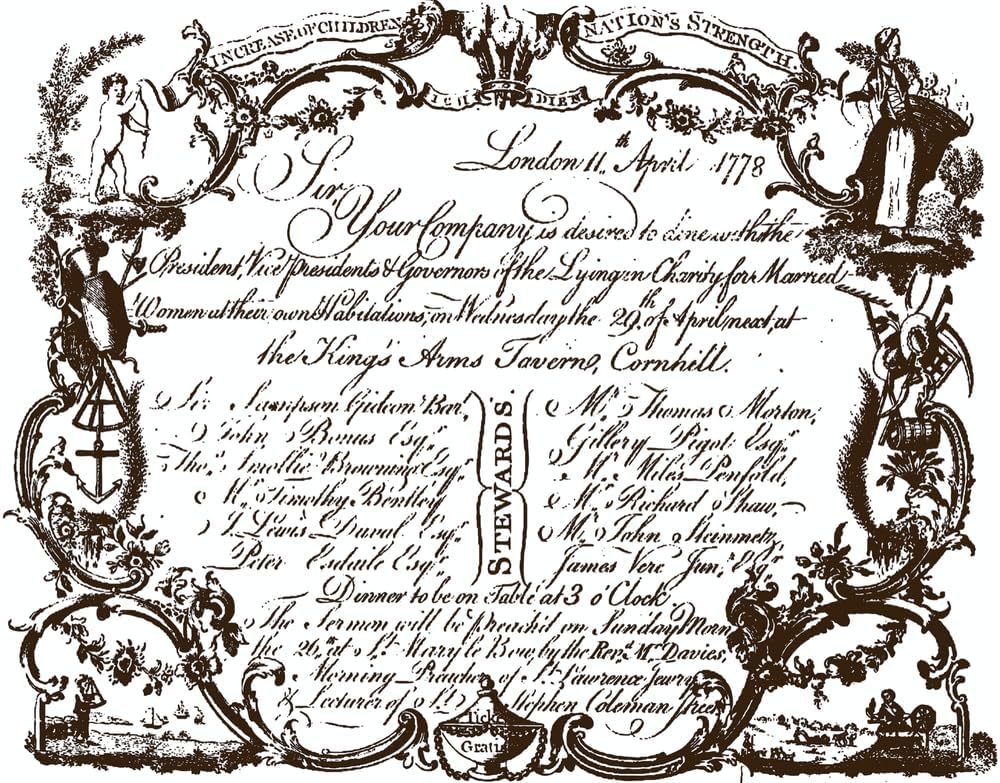 INCREASE OF CHILDREN A NATION'S STRENGTH.
ICH DIEN
London 11th April 1778
Sir
Your Company is desired to dine with the
President, Vice Presidents & Governors of the Lying in Charity for Married
Women at their own Habitations, on Wednesday the 29th of April next, at
the King's Arms Tavern, Cornhill.
STEWARDS.
Sir Sampson Gideon Bar.t
John Bonus Esq.r
Tho.s Smollie Browning Esq.r
M.r Timothy Bentley
Lewis Duval Esq.r
Peter Esdaile Esq.r
M.r Thomas Morton,
Gillery Pigot Esq.r
M.r Miles Penfold,
M.r Richard Shaw,
M.r John Steinmetz,
James Vere Jun.r Esq.r
Dinner to be on Table at 3 o'Clock
The Sermon will be preach'd on Sunday Morn
the 26th at St. Mary le Bow, by the Rev.d Mr. Davies,
Morning Preacher of St. Lawrence Jewry
& Lecturer of St. Stephen Coleman Street
Ticket
Gratis